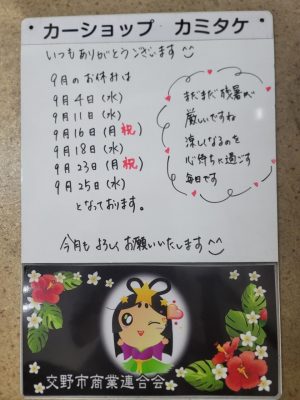 カーショップ カミタケ
いつもありがとうございます^^
9月のお休みは
9月4日(水)
9月11日(水)
9月16日(月 祝)
9月18日(水)
9月23日(月 祝)
9月25日(水)
となっております。
まだまだ残暑が
厳しいですね
涼しくなるのを
心待ちに過ごす
毎日です
今月もよろしくお願いいたします^^
交野市商業連合会